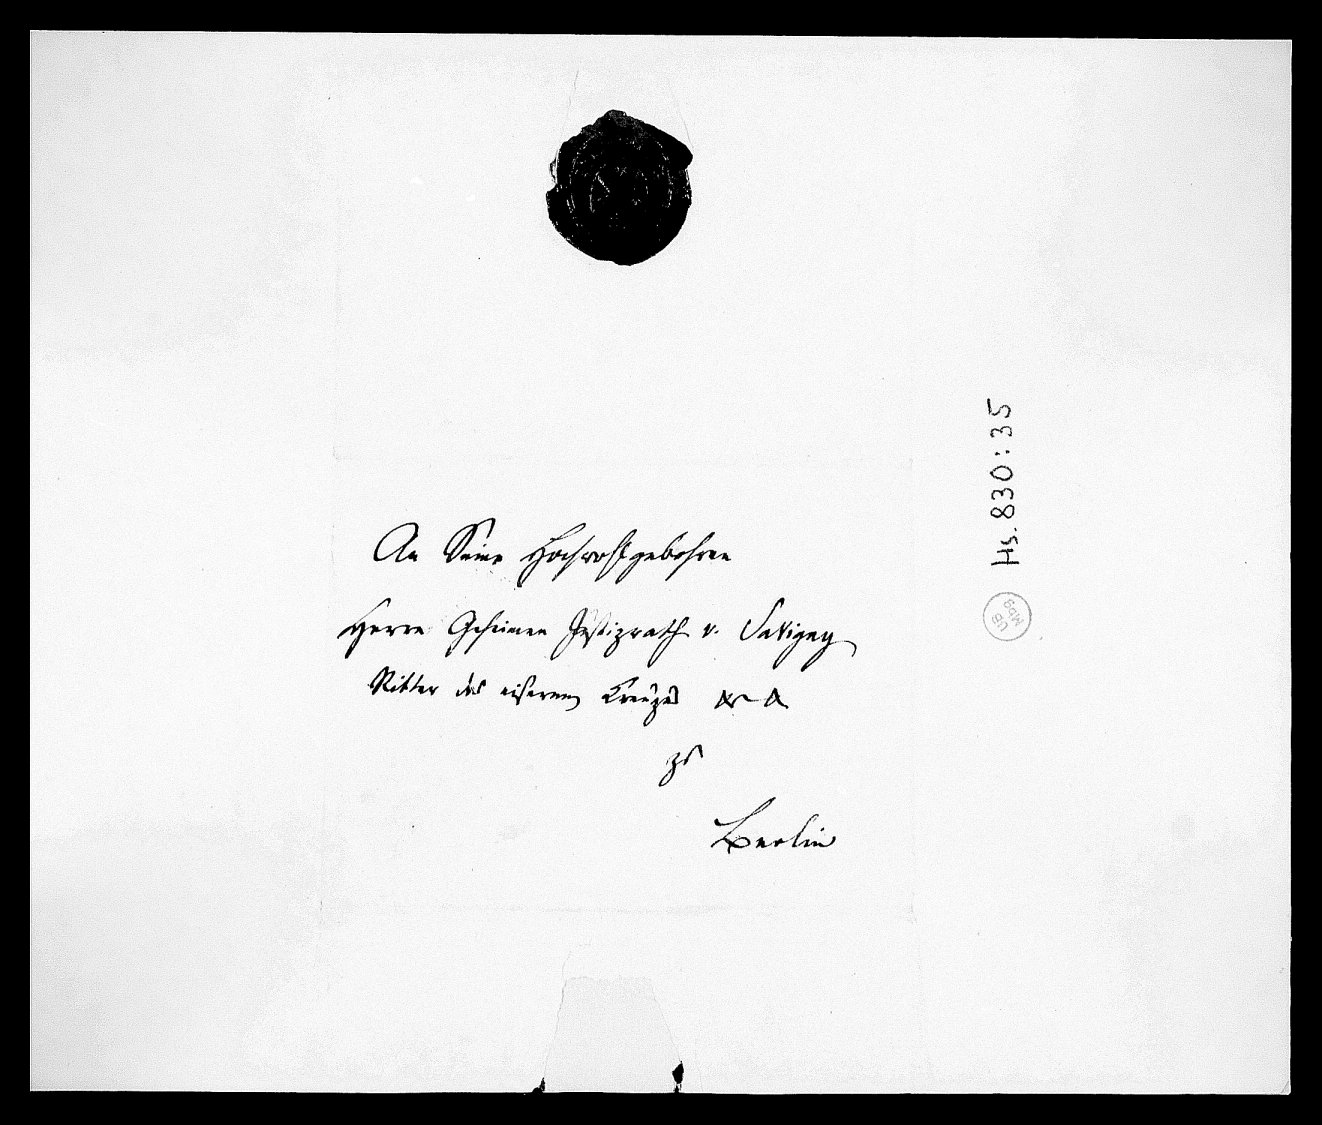 An Seine Hochwohlgebohren
Herrn Geheimen Justizrath v. Savigny
Ritter des eisernen Kreuzes
zu
Berlin
Hs. 830:35
UB
Mbg